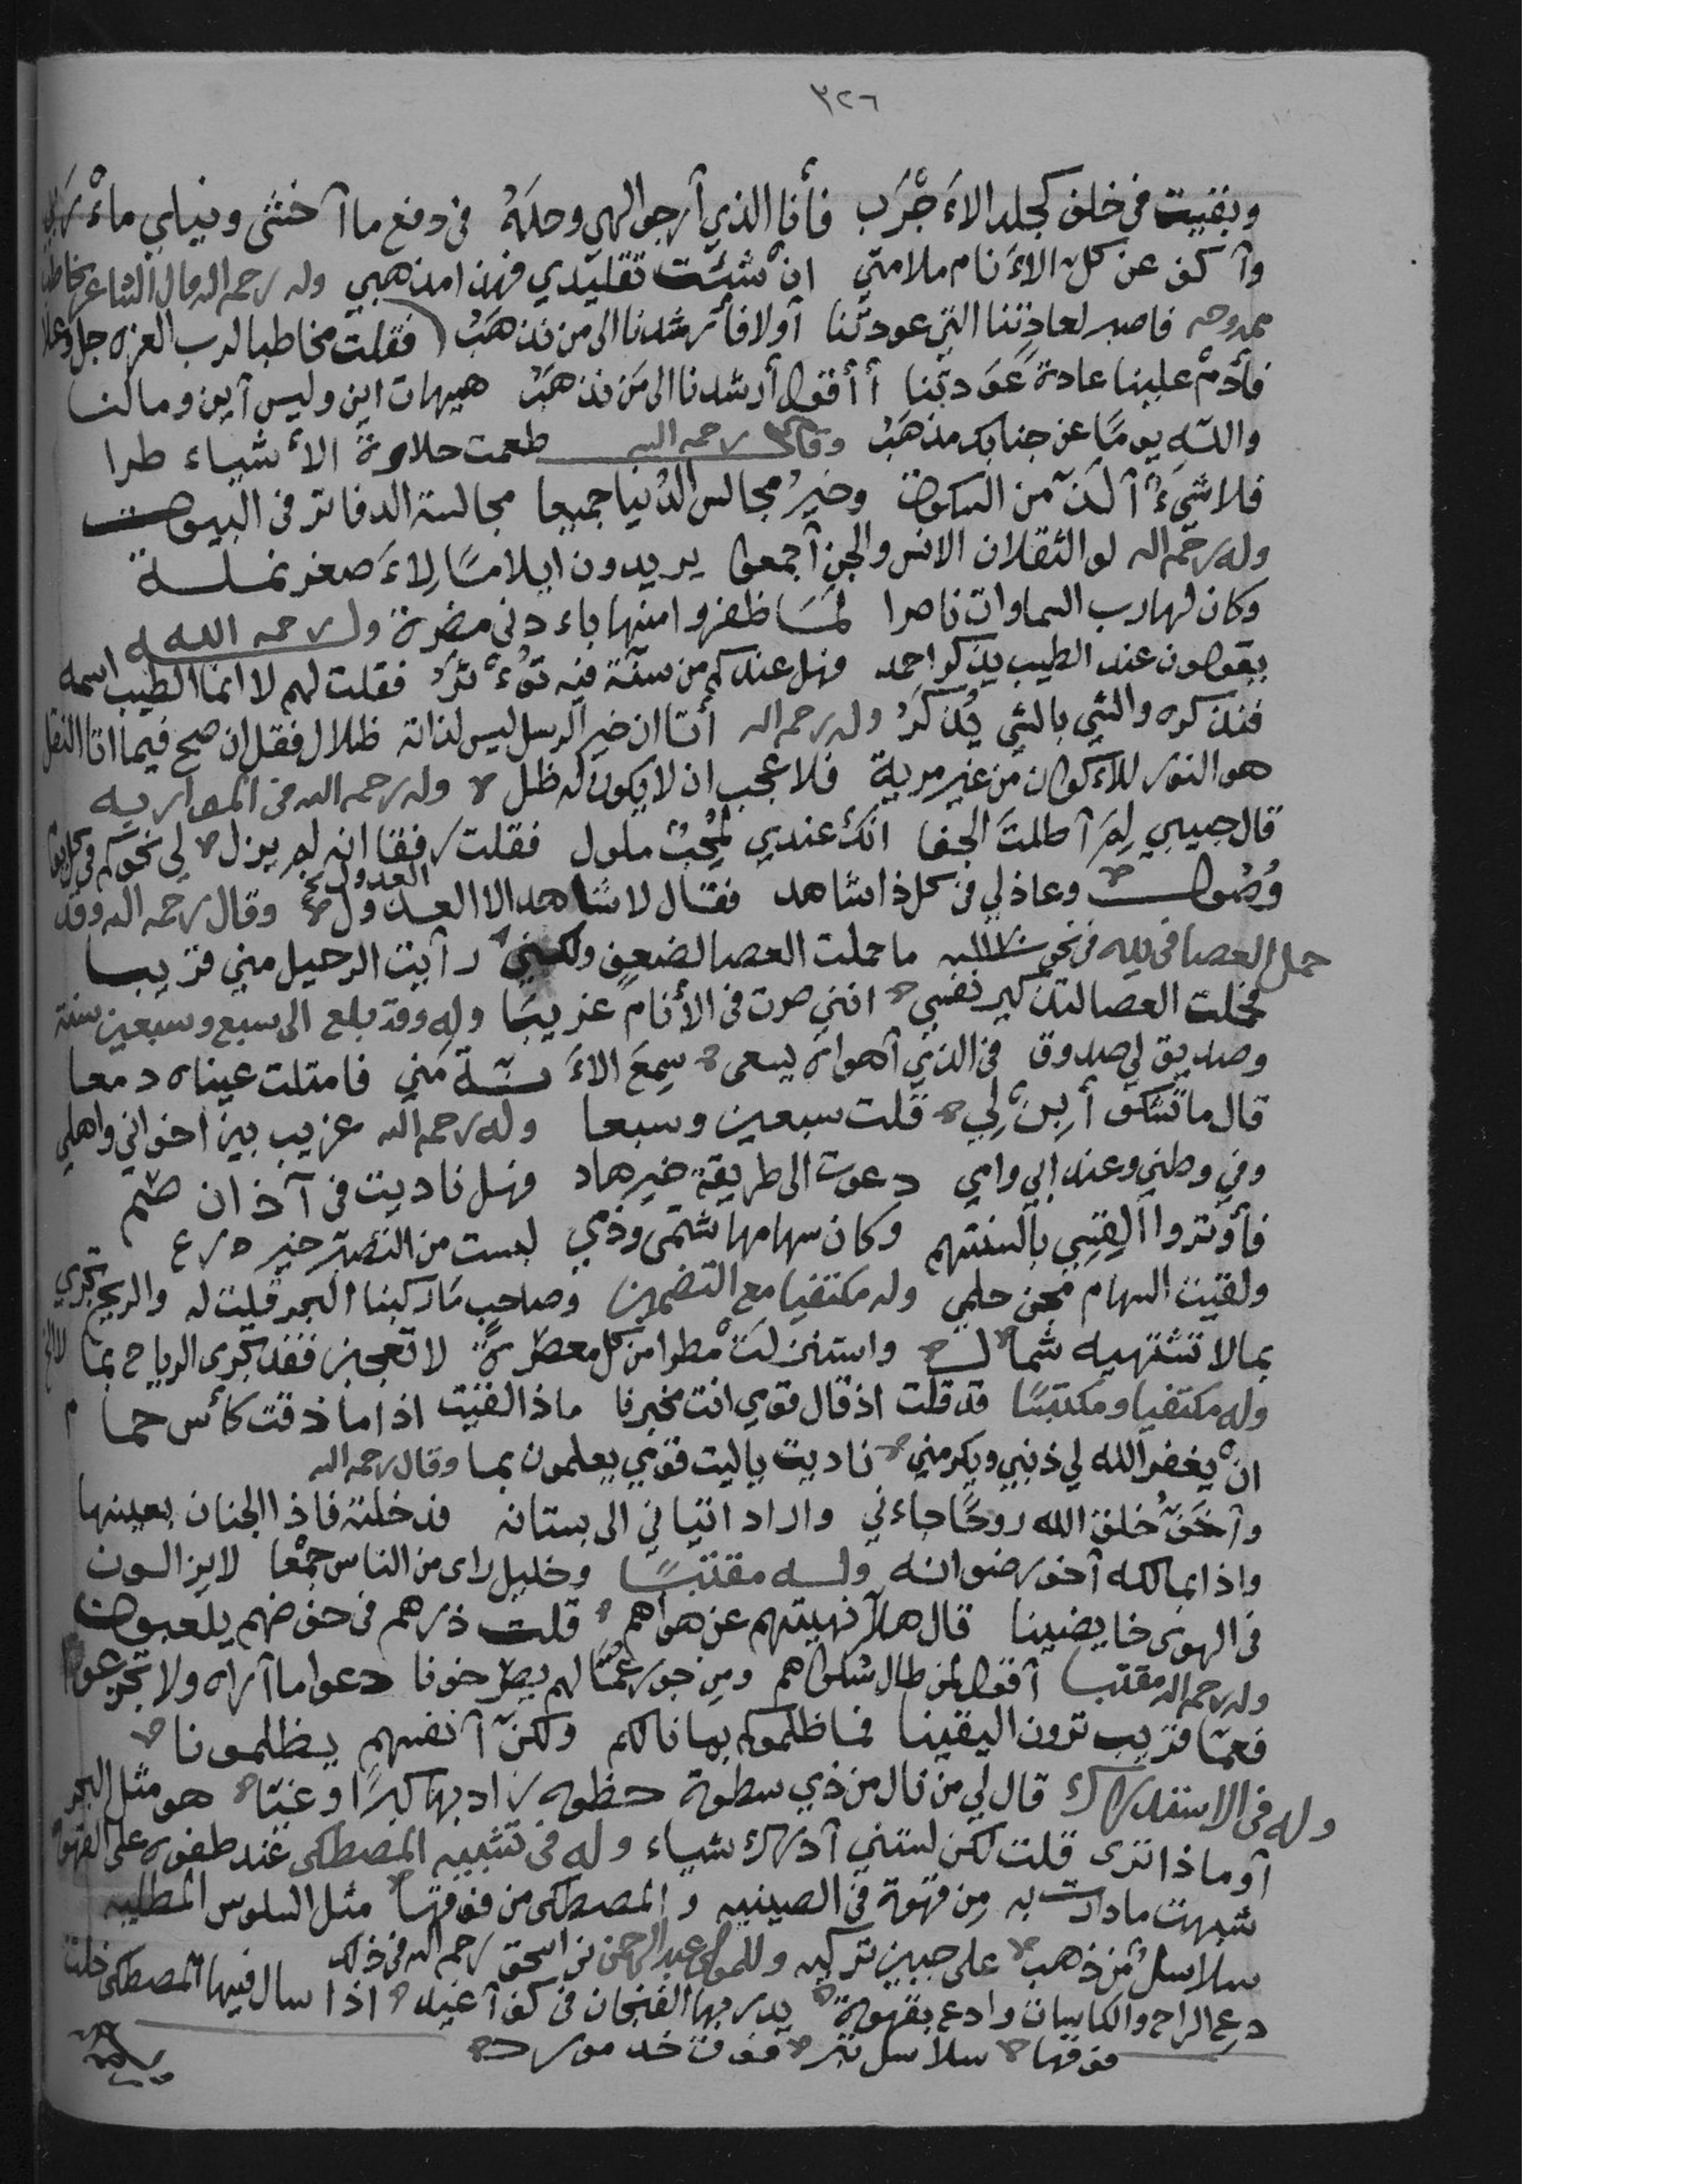 ٣٢٦
وبقيت في خلف كجلد الاَجْرَب فأنا الذي أرجو الهي وحدَهُ في دفع ما أخشى ونيلي مأْرَبي
وأكف عن كل الاَنام ملامتي انْ شئت تقليدي فهذا مذهبي وله رحمه الله قال الشاعر مخاطبا
ممدوحه فاصبر لعادتنا التي عودتنا أولا فأرشدنا الى من نذهَبُ فقلت مخاطبا لرب العزه جل وعلا
فأدمْ علينا عادة عَوَدتنا أأقول أرشدنا الى مَن نذهَبُ هيهات اين وليس أين وما لنا
والله يومًا عن جنابك مذهَبُ وقال رحمه الله طعمت حلاوة الأشياء طرا
فلا شيءٌ ألذّ من السكوت وخيرُ مجالس الدُنيا جميعا مجالسة الدفاتر في البيوت
وله رحمه الله لو الثقلان الانس والجن أجمعوا يريدون ايلامًا لاَصغر نملة
وكان لها رب السماوات ناصرا لمَا ظفروا منها باَدنى مضرة وله رحمه الله
يقولون عند الطيب يذكر احمد فهل عندكم من سنّة فيه تُؤْثَرُ فقلت لهم لا انما الطيب اسمه
فنذكره والشي بالشي يُذكَرُ وله رحمه الله أتا ان خير الرسل ليس لذاته ظلال فقل ان صح فيما اتا النقل
هو النور للاَكوان من غير مرية فلا عجب ان لا يكون له ظل وله رحمه الله في المواربه
قال حبيبي لِمَ أطلت الجفا انك عندي لمُحبٌ ملول فقلت رفقا انه لم يزل لي نحوكم في كل
وُصُول وعاذلي في كل ذا شاهد فقال لا شاهد الا العدول العدول وقال رحمه الله وقد
حمل العصا في يده في نحو سنه ما حملت العصا لضعف ولكني رأيت الرحيل مني قريبا
فحملت العصا لتذكير نفسي انني صرت في الأنام غريبًا وله وقد بلغ الى سبع وسبعين سنة
وصديق لي صدوق في الذي أهواه يسعى سِمعَ الاَنّة مني فامتلت عيناه دمعا
قال ما تشكو أبِنْ لِي قلت سبعين وسبعا وله رحمه الله غريب بين اخواني واهلي
وفي وطني وعند ابي وامي دعوت الى طريقة خير هاد فهل ناديت في آذان صُم
فأوتروا القِسِي بألسنتهم وكان سهامها شتمي وذمي لبست من التصبّر خير درع
ولقيت السهام مجن حلمي وله مكتفيا مع التضمين وصاحب مَا ركبنا البحر قلت له والريح تجري
بما لا تشتهيه شمال واستنزلتْ مطرا من كل معصرةً لا تعجبن فقد تجرى الرياح بما لا
وله مكتفيا ومكتبسًا قد قلت اذ قال قومي انت مخبرنا ماذا لقيت اذا ما ذقت كأس حمام
انْ يغفر الله لي ذنبي ويكرمني ناديت ياليت قومي يعلمون بما وقال رحمه الله
وأخَوٌ خلق الله روحًا جاءني واراد اتياني الى بستانه فدخلته فاذا الجنان بعينها
واذا بمالكه أخو رضوانه وله مقتبسًا وخليل راى من الناس جمْعا لا يزالون
في الهوى خايضينا قال هلّا نهيتهم عن هواهم قلت ذرهم في خوضهم يلعبون
وله رحمه الله مقتبسا أقول لمن طال شكواهم ومِن جور عُمّالهم يصرخونا دعوا ما أراه ولا تجزعوا
فعمّا قريب ترون اليقينا فما ظلموكم بما نالكم ولكنّ أنفسهم يظلمونا
وله في الاستدراك قال لي من نال من ذي سطوة حظوه زاد بها كبرًا وغيّا هو مثل البحر
أو ماذا ترى قلت لكن لستني أدرك شياء وله في تشبيه المصطكى عند طفوره على القهوة
شبهت ما دارت به مِن قهوة في الصينيه والمصطكى من فوقها مثل السلوس المطليه
سلاسلٌ من ذهب على جبين تركيه وللمولى عبد الرحمن بن اسحق رحمه الله في ذلك
دع الراح والكاسات وادع بقهوة يدر بها الفنجان في كف أغيد اذا سال فيها المصطكى خلت
فوقها سلاسل تبر فوق خد مورد